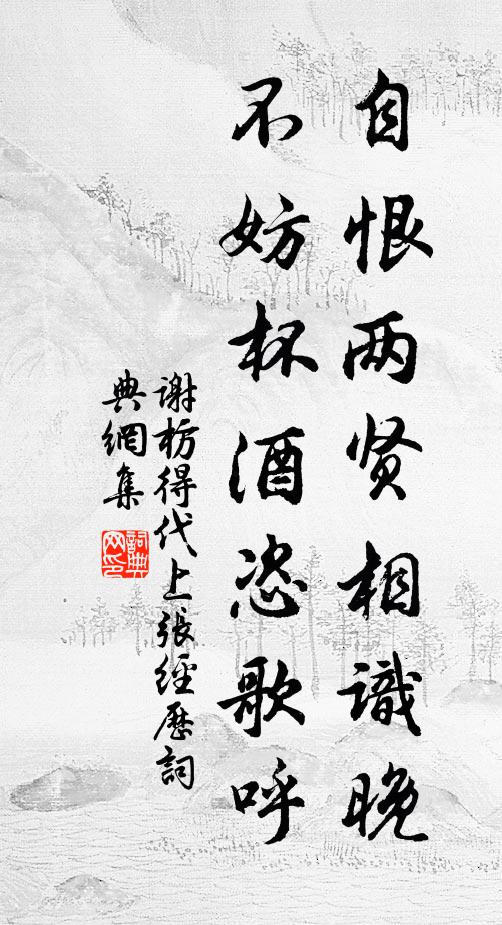 自恨两贤相識晚
不妨杯酒恣歌呼
谢枋得代上張經歷詞
典網集
詞典网印